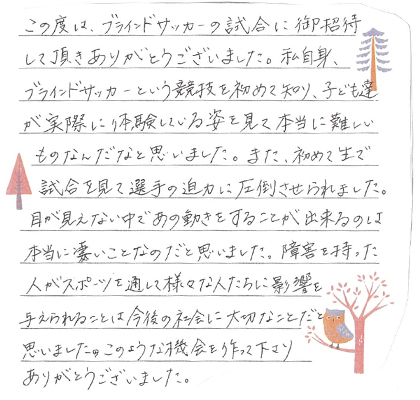 この度は、ブラインドサッカーの試合に御招待
して頂きありがとうございました。私自身、
ブラインドサッカーという競技を初めて知り、子ども達
が実際に体験している姿を見て本当に難しい
ものなんだなと思いました。また、初めて生で
試合を見て選手の迫力に圧倒させられました。
目が見えない中であの動きをすることが出来るのは
本当に凄いことなのだと思いました。障害を持った
人がスポーツを通して様々な人たちに影響を
与えられることは今後の社会に大切なことだと
思いました。このような機会を作って下さり
ありがとうございました。